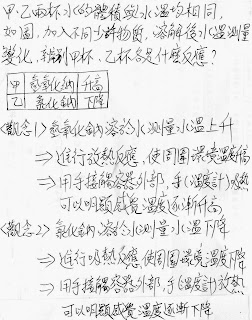 甲、乙兩杯水的體積及水溫均相同,
如圖,加入不同之純物質,溶解後水溫測量
變化,判斷甲杯、乙杯各是什麼反應?
甲 氫氧化鈉 升高
乙 氯化鈉 下降
<觀念1>氫氧化鈉溶於水測量水溫上升
⇒進行放熱反應,使周圍環境溫度高
⇒用手接觸容器外部,手(溫度計)吸熱
可以明顯感覺溫度逐漸升高
<觀念2>氯化鈉溶於水測量水溫下降
⇒進行吸熱反應,使周圍環境溫度下降
⇒用手接觸容器外部,手(溫度計)放熱
可以明顯感覺溫度逐漸下降